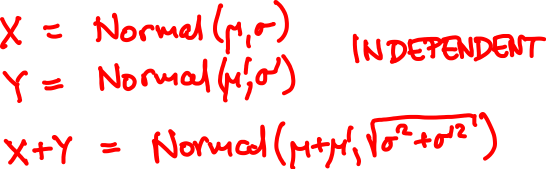 X = Normal(μ,σ)
Y = Normal(μ',σ')
INDEPENDENT
X+Y = Normal(μ+μ', √σ²+σ'²)